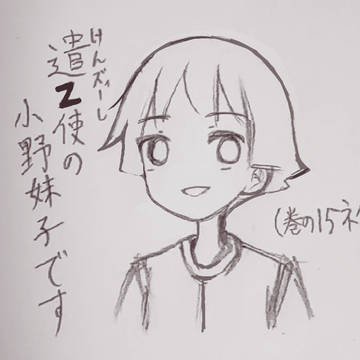 けんズィーし
遣Z使の
小野妹子です
(巻の15ネタ